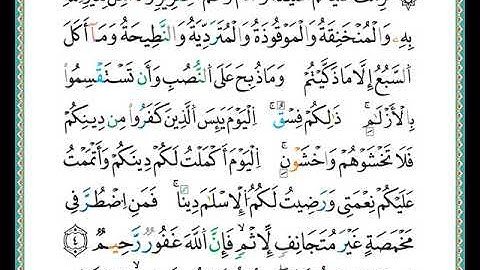 بِهِۦ وَالْمُنْخَنِقَةُ وَالْمَوْقُوذَةُ وَالْمُتَرَدِّيَةُ وَالنَّطِيحَةُ وَمَآ أَكَلَ
السَّبُعُ إِلَّا مَا ذَكَّيْتُمْ وَمَا ذُبِحَ عَلَى النُّصُبِ وَأَن تَسْتَقْسِمُوا
بِالْأَزْلَٰمِ ذَٰلِكُمْ فِسْقٌ الْيَوْمَ يَئِسَ الَّذِينَ كَفَرُوا مِن دِينِكُمْ
فَلَا تَخْشَوْهُمْ وَاخْشَوْنِ الْيَوْمَ أَكْمَلْتُ لَكُمْ دِينَكُمْ وَأَتْمَمْتُ
عَلَيْكُمْ نِعْمَتِى وَرَضِيتُ لَكُمُ الْإِسْلَٰمَ دِينًا فَمَنِ اضْطُرَّ فِى
مَخْمَصَةٍ غَيْرَ مُتَجَانِفٍ لِّإِثْمٍ فَإِنَّ اللَّهَ غَفُورٌ رَّحِيمٌ ٤